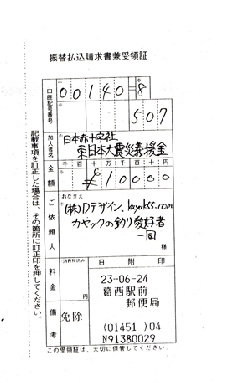 振替払込請求書兼受領証
口座記号番号
00140-8
507
加入者名
日本赤十字社
東日本大震災義援金
金額
千 百 十 万 千 百 十 円
¥81000
ご依頼人
おなまえ
(株)Dデザイン、kayak55.com
カヤックの釣り愛好者
一同
様
料金
日附印
23-06-24
葛西駅前
郵便局
備考
免除
(01451)04
N91380029
記載事項を訂正した場合は、その箇所に訂正印を押してください。
この受領証は、大切に保管してください。